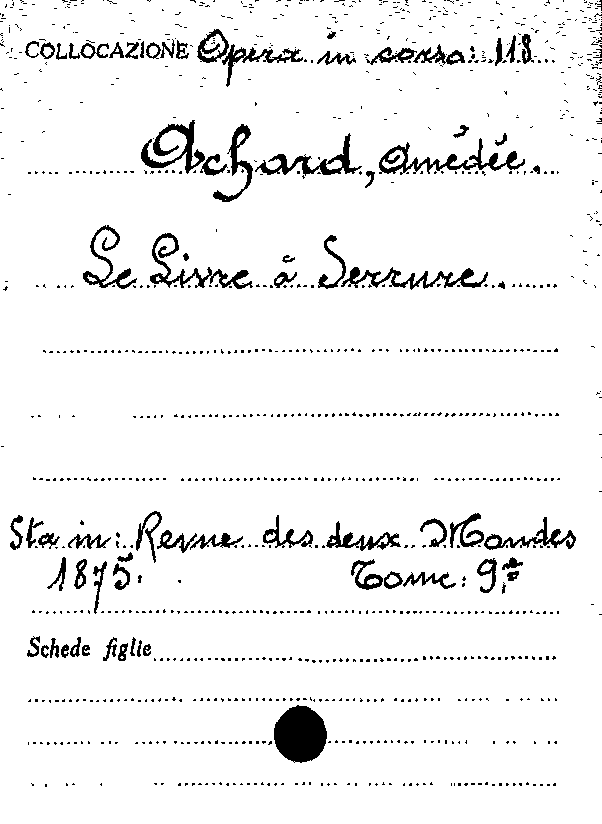 COLLOCAZIONE Opera in corso: 118
Achard, Amédée.
Le Livre à Serrure.
Sta in: Revue des deux Mondes
1875. Tome: 9.e
Schede figlie